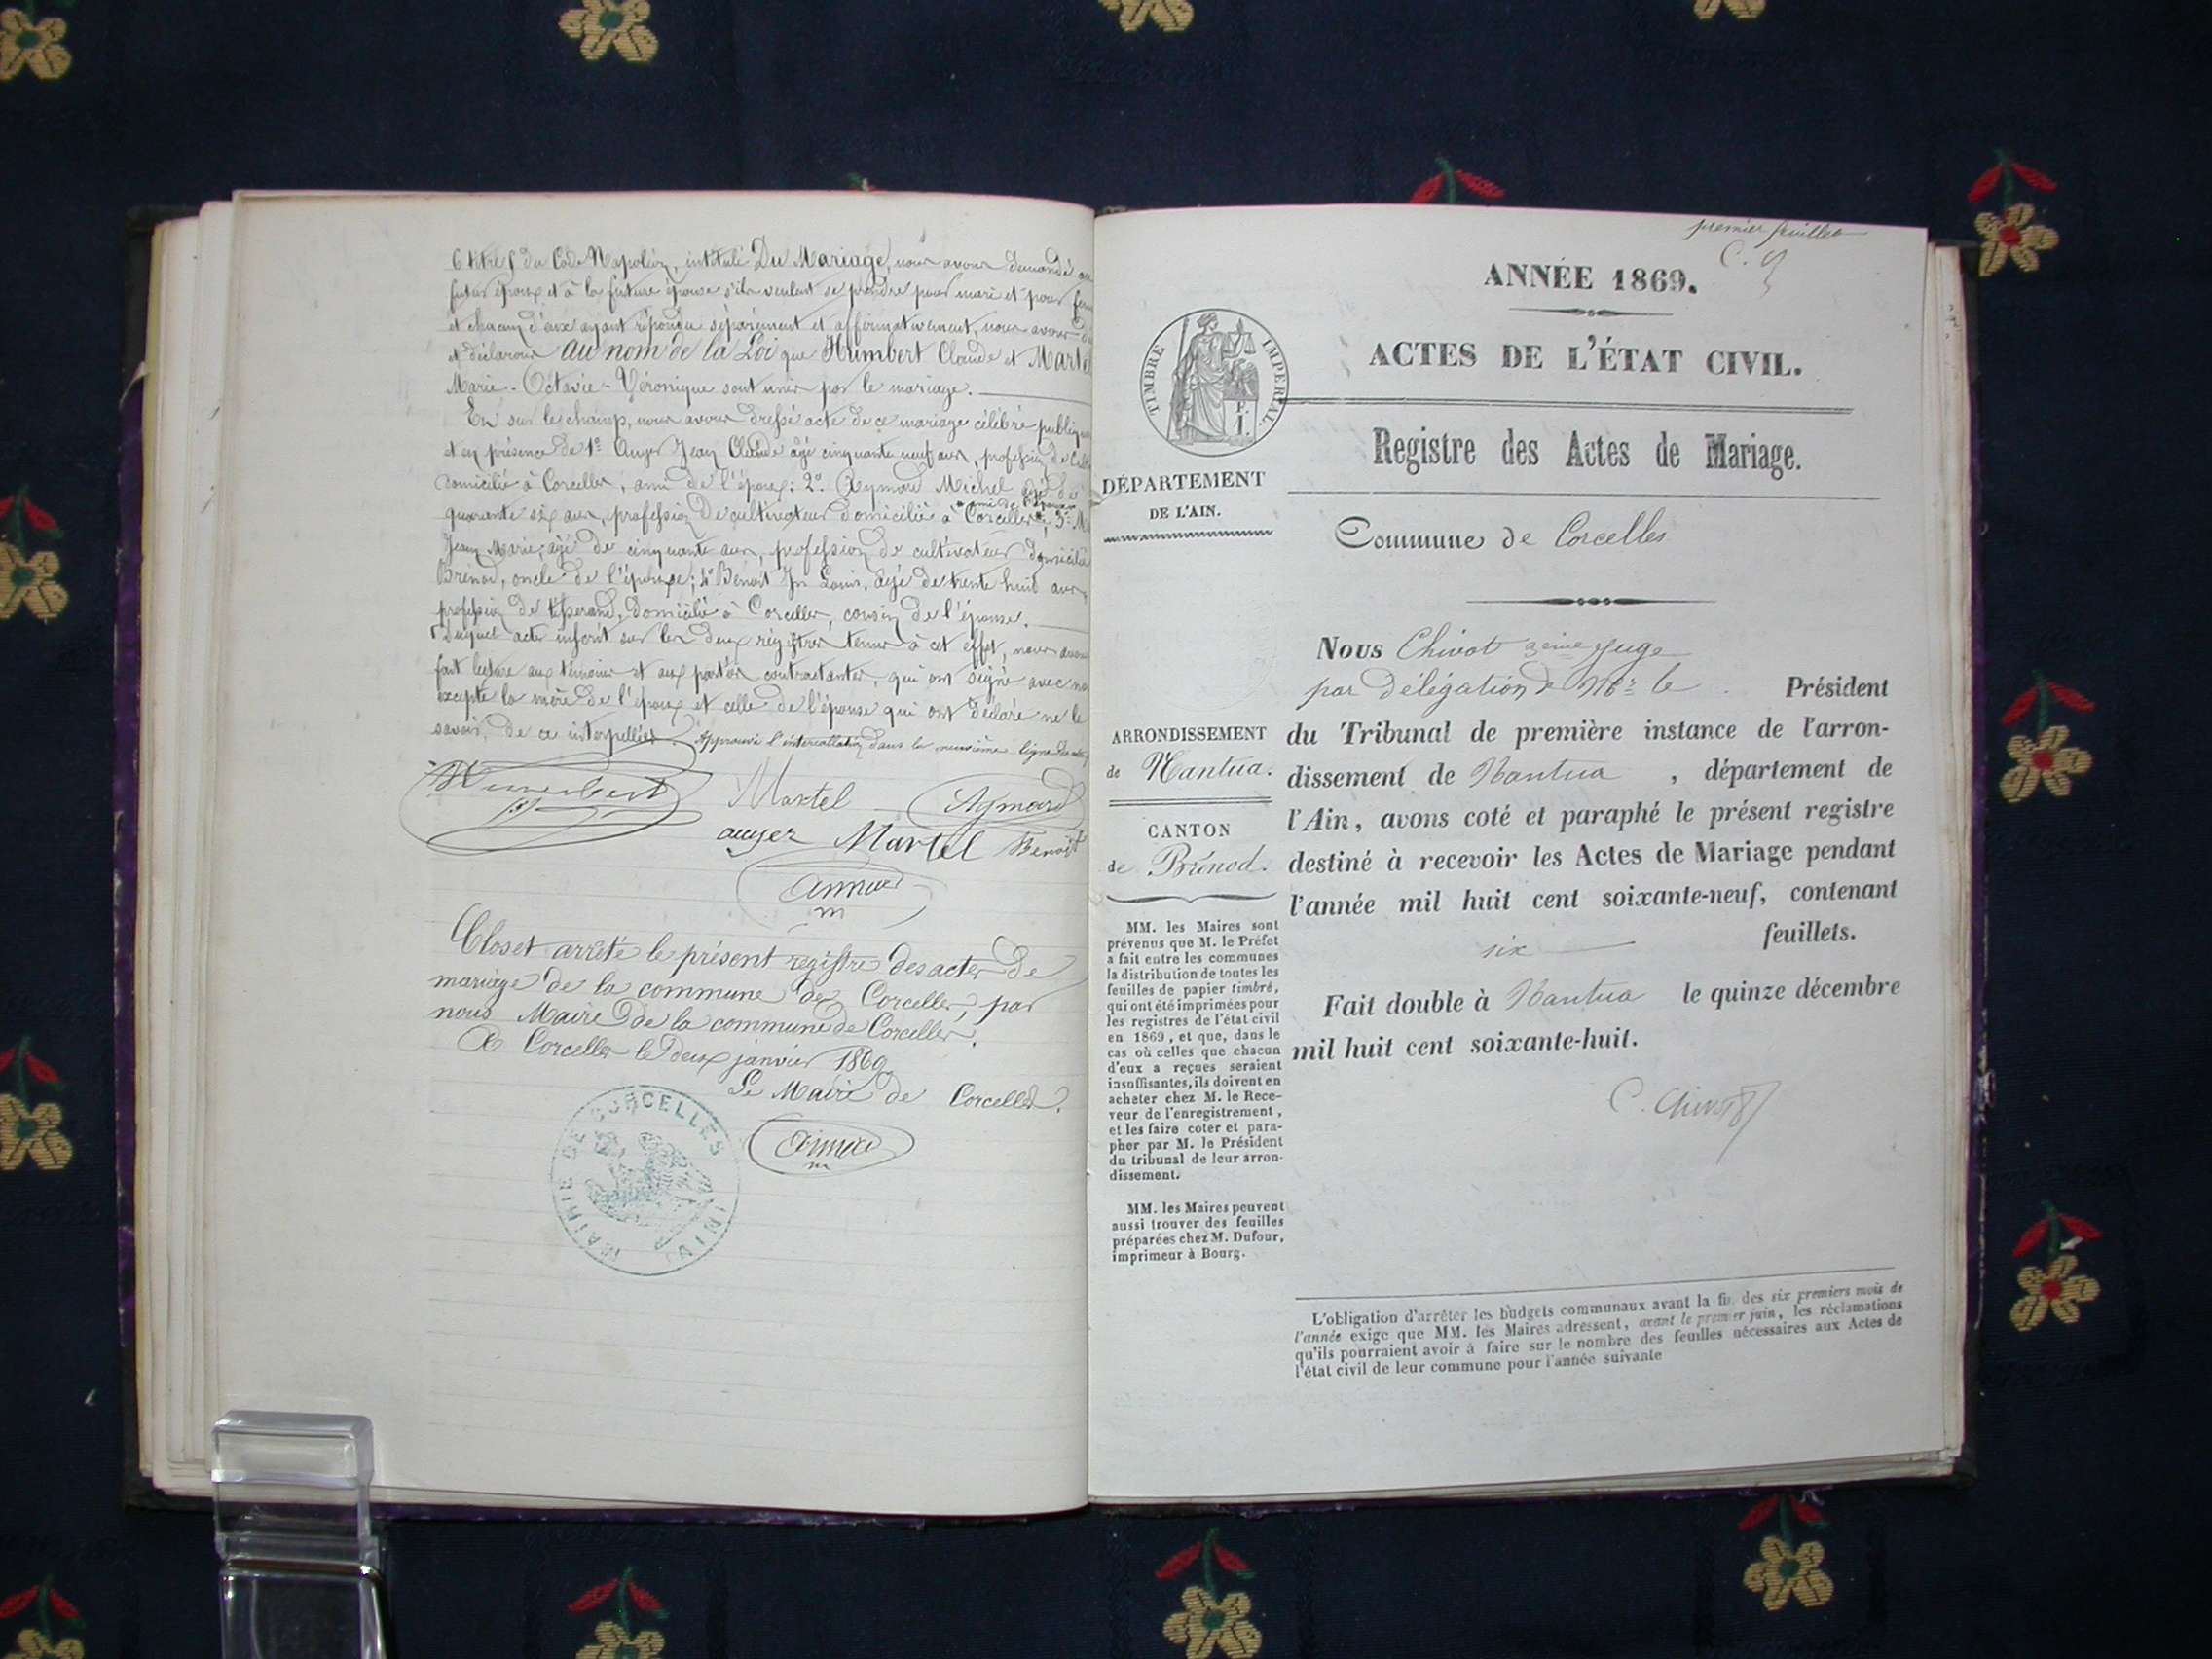 6 titre 5 du Code Napoléon, intitulé Du Mariage, nous avons demandé au
futur époux et à la future épouse s'ils veulent se prendre pour mari et pour fem
et chacun d'eux ayant répondu séparément et affirmativement, nous avons
et déclarons au nom de la Loi que Humbert Claude et Martel
Marie-Octavie-Véronique sont unis par le mariage.
Et sur le champ, nous avons dressé acte de ce mariage célébré publiq
et en présence de 1° Auger Jean Claude agé cinquante neuf ans, profession de
domicilié à Corcelles, ami de l'époux; 2°. Aymard Michel agé de
quarante six ans, profession de cultivateur domicilié à Corcelles, 3° M
ami de l'époux
Jean Marie, âgé de cinquante ans, profession de cultivateur domicilié
Brénod, oncle de l'épouse; 4° Benoit Jn Louis, âgé de trente huit ans,
profession de tisserand, domicilié à Corcelles, cousin de l'épouse.
Duquel acte inscrit sur les deux régistres tenus à cet effet, nous avons
fait lecture aux témoins et aux parties contractantes, qui ont signé avec nous
excepté la mère de l'époux et celle de l'épouse qui ont déclaré ne le
savoir, de ce interpellées. Approuvé l'intercallation dans la neuvième ligne
Humbert
Martel
Aymard
auger Martel Benoit
Clos et arrêté le présent registre des actes de
mariage de la commune de Corcelles, par
nous Maire de la commune de Corcelles.
A Corcelles le deux janvier 1869.
Le Maire de Corcelles.
MAIRIE DE CORCELLES
(AIN)
premier feuillet
ANNÉE 1869.
ACTES DE L'ÉTAT CIVIL.
TIMBRE IMPÉRIAL.
F.
1.
Registre des Actes de Mariage.
DÉPARTEMENT
DE L'AIN.
Commune de Corcelles
Nous Chivot 3eme Juge
par délégation de Mr le Président
du Tribunal de première instance de l'arron-
dissement de Nantua , département de
l'Ain, avons coté et paraphé le présent registre
destiné à recevoir les Actes de Mariage pendant
l'année mil huit cent soixante-neuf, contenant
six feuillets.
Fait double à Nantua le quinze décembre
mil huit cent soixante-huit.
C. Chivot
ARRONDISSEMENT
de Nantua.
CANTON
de Brénod.
MM. les Maires sont
prévenus que M. le Préfet
a fait entre les communes
la distribution de toutes les
feuilles de papier timbré,
qui ont été imprimées pour
les registres de l'état civil
en 1869, et que, dans le
cas où celles que chacun
d'eux a reçues seraient
insuffisantes, ils doivent en
acheter chez M. le Rece-
veur de l'enregistrement,
et les faire coter et para-
pher par M. le Président
du tribunal de leur arron-
dissement.
MM. les Maires peuvent
aussi trouver des feuilles
préparées chez M. Dufour,
imprimeur à Bourg.
L'obligation d'arrêter les budgets communaux avant la fin des six premiers mois de
l'année exige que MM. les Maires adressent, avant le premier juin, les réclamations
qu'ils pourraient avoir à faire sur le nombre des feuilles nécessaires aux Actes de
l'état civil de leur commune pour l'année suivante